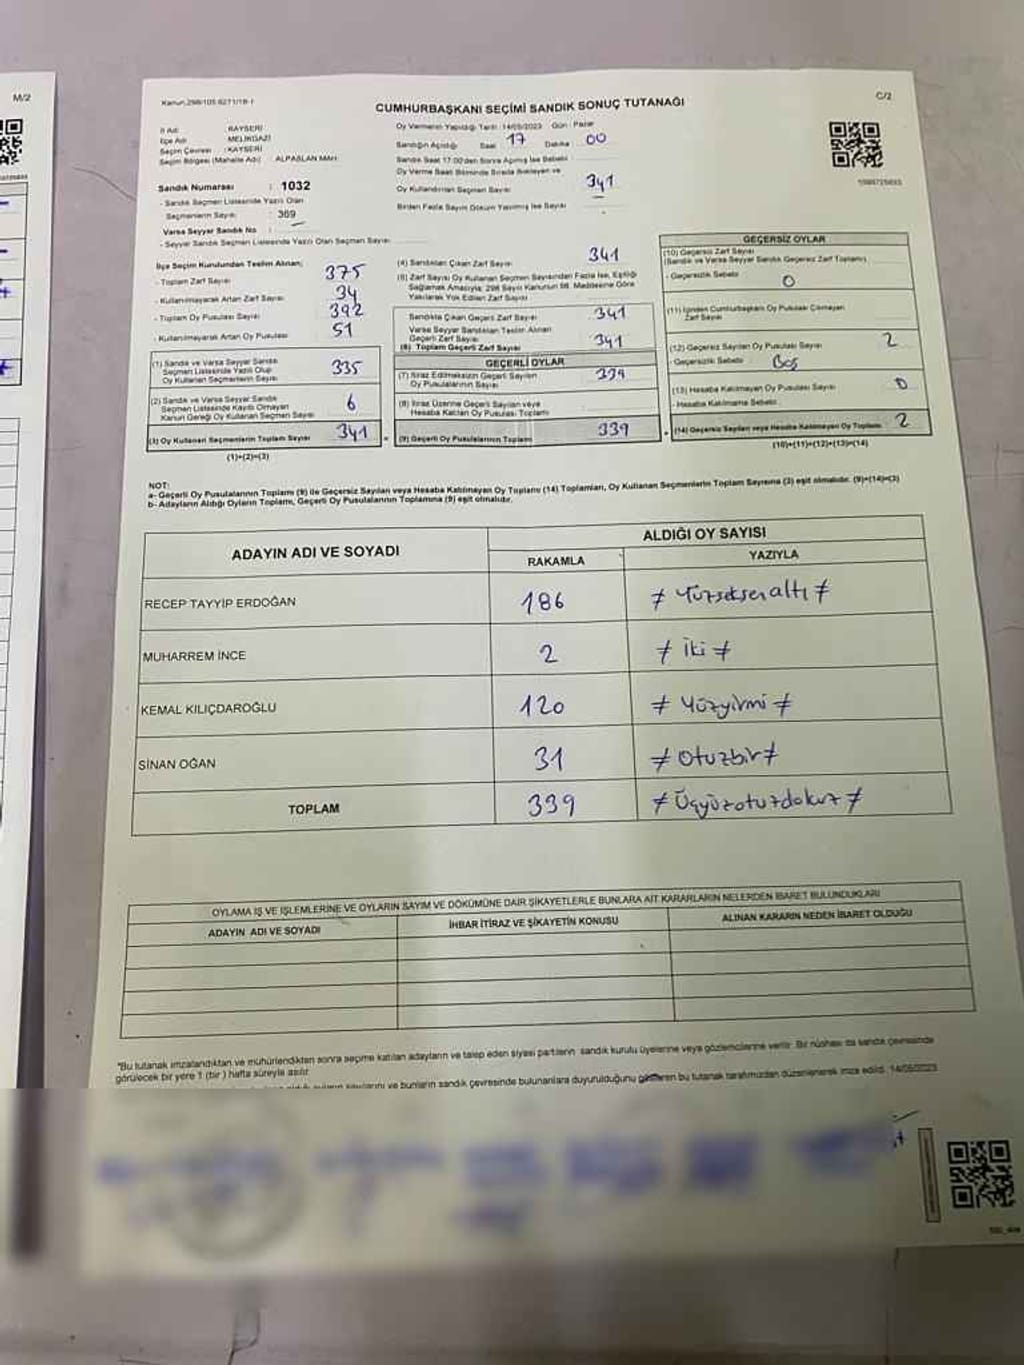 M/2
Kanun,298/105 6271/18-1
C/2
CUMHURBAŞKANI SEÇİMİ SANDIK SONUÇ TUTANAĞI
İl Adı : KAYSERİ
İlçe Adı : MELİKGAZİ
Seçim Çevresi : KAYSERİ
Seçim Bölgesi (Mahalle Adı) : ALPASLAN MAH.
Oy Vermenin Yapıldığı Tarih : 14/05/2023 Gün : Pazar
Sandığın Açıldığı Saat 17 Dakika 00
Sandık Saat 17:00'den Sonra Açılmış İse Sebebi
Oy Verme Saati Bitiminde Sırada Bekleyen ve
Oy Kullandırılan Seçmen Sayısı 341
Birden Fazla Sayım Döküm Yapılmış İse Sayısı
Sandık Numarası : 1032
- Sandık Seçmen Listesinde Yazılı Olan
Seçmenlerin Sayısı : 369
Varsa Seyyar Sandık No :
- Seyyar Sandık Seçmen Listesinde Yazılı Olan Seçmen Sayısı
İlçe Seçim Kurulundan Teslim Alınan;
- Toplam Zarf Sayısı 375
- Kullanılmayarak Artan Zarf Sayısı 34
- Toplam Oy Pusulası Sayısı 392
- Kullanılmayarak Artan Oy Pusulası 51
(1) Sandık ve Varsa Seyyar Sandık
Seçmen Listesinde Yazılı Olup
Oy Kullanan Seçmenlerin Sayısı 335
(2) Sandık ve Varsa Seyyar Sandık
Seçmen Listesinde Kayıtlı Olmayan
Kanun Gereği Oy Kullanan Seçmen Sayısı 6
(3) Oy Kullanan Seçmenlerin Toplam Sayısı 341
(1)+(2)=(3)
(4) Sandıktan Çıkan Zarf Sayısı 341
(5) Zarf Sayısı Oy Kullanan Seçmen Sayısından Fazla İse, Eşitliği
Sağlamak Amacıyla; 298 Sayılı Kanunun 98. Maddesine Göre
Yakılarak Yok Edilen Zarf Sayısı
Sandıkta Çıkan Geçerli Zarf Sayısı 341
Varsa Seyyar Sandıktan Teslim Alınan
Geçerli Zarf Sayısı
(6) Toplam Geçerli Zarf Sayısı 341
GEÇERLİ OYLAR
(7) İtiraz Edilmeksizin Geçerli Sayılan
Oy Pusulalarının Sayısı 339
(8) İtiraz Üzerine Geçerli Sayılan veya
Hesaba Katılan Oy Pusulası Toplamı
(9) Geçerli Oy Pusulalarının Toplamı 339
GEÇERSİZ OYLAR
(10) Geçersiz Zarf Sayısı
(Sandık ve Varsa Seyyar Sandık Geçersiz Zarf Toplamı)
- Geçersizlik Sebebi 0
(11) İçinden Cumhurbaşkanı Oy Pusulası Çıkmayan
Zarf Sayısı
(12) Geçersiz Sayılan Oy Pusulası Sayısı 2
- Geçersizlik Sebebi Boş
(13) Hesaba Katılmayan Oy Pusulası Sayısı 0
- Hesaba Katılmama Sebebi
(14) Geçersiz Sayılan veya Hesaba Katılmayan Oy Toplamı 2
(10)+(11)+(12)+(13)=(14)
NOT:
a- Geçerli Oy Pusulalarının Toplamı (9) ile Geçersiz Sayılan veya Hesaba Katılmayan Oy Toplamı (14) Toplamları, Oy Kullanan Seçmenlerin Toplam Sayısına (3) eşit olmalıdır. (9)+(14)=(3)
b- Adayların Aldığı Oyların Toplamı, Geçerli Oy Pusulalarının Toplamına (9) eşit olmalıdır.
ADAYIN ADI VE SOYADI
ALDIĞI OY SAYISI
RAKAMLA YAZIYLA
RECEP TAYYİP ERDOĞAN 186 ≠ Yüzseksenaltı ≠
MUHARREM İNCE 2 ≠ İki ≠
KEMAL KILIÇDAROĞLU 120 ≠ Yüzyirmi ≠
SİNAN OĞAN 31 ≠ Otuzbir ≠
TOPLAM 339 ≠ Üçyüzotuzdokuz ≠
OYLAMA İŞ VE İŞLEMLERİNE VE OYLARIN SAYIM VE DÖKÜMÜNE DAİR ŞİKAYETLERLE BUNLARA AİT KARARLARIN NELERDEN İBARET BULUNDUKLARI
ADAYIN ADI VE SOYADI İHBAR İTİRAZ VE ŞİKAYETİN KONUSU ALINAN KARARIN NEDEN İBARET OLDUĞU
"Bu tutanak imzalandıktan ve mühürlendikten sonra seçime katılan adayların ve talep eden siyasi partilerin sandık kurulu üyelerine veya gözlemcilerine verilir. Bir nüshası da sandık çevresinde
görülecek bir yere 1 (bir) hafta süreyle asılır.
sayılarını ve bunların sandık çevresinde bulunanlara duyurulduğunu gösteren bu tutanak tarafımızdan düzenlenerek imza edildi. 14/05/2023